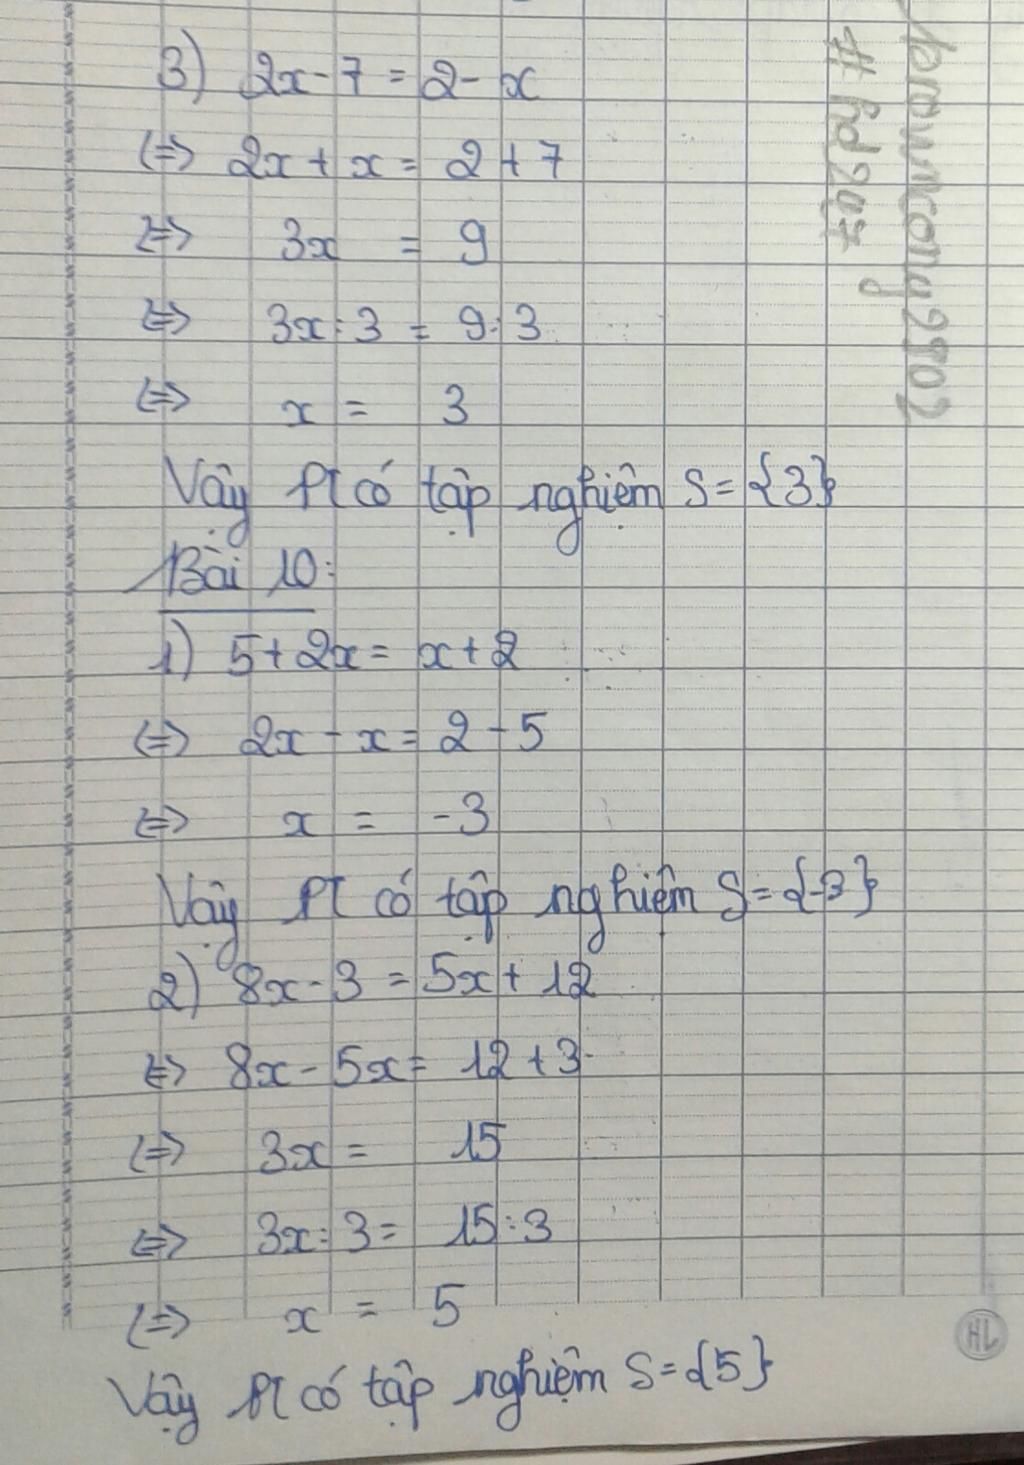 3) 2x - 7 = 2 - x
<=> 2x + x = 2 + 7
<=> 3x = 9
<=> 3x : 3 = 9 : 3
<=> x = 3
Vậy Pt có tập nghiệm S = {3}
Bài 10:
1) 5 + 2x = x + 2
<=> 2x - x = 2 - 5
<=> x = -3
Vậy Pt có tập nghiệm S = {-3}
2) 8x - 3 = 5x + 12
<=> 8x - 5x = 12 + 3
<=> 3x = 15
<=> 3x : 3 = 15 : 3
<=> x = 5
Vậy Pt có tập nghiệm S = {5}
HL